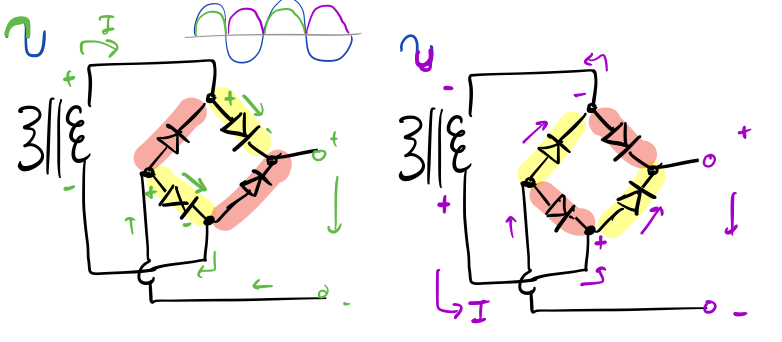 I
+
+
-
-
+
-
+
-
-
-
+
+
+
I
-